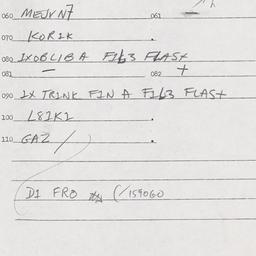 060 MEJVN7 061
070 KOR1K .
080 1XOBLIBA F163 FLAS+
081 — 082 +
090 1X TRINK FIN A F163 FLAS+
100 L81K1 .
110 GAZ / .
D1 FRO (/159060